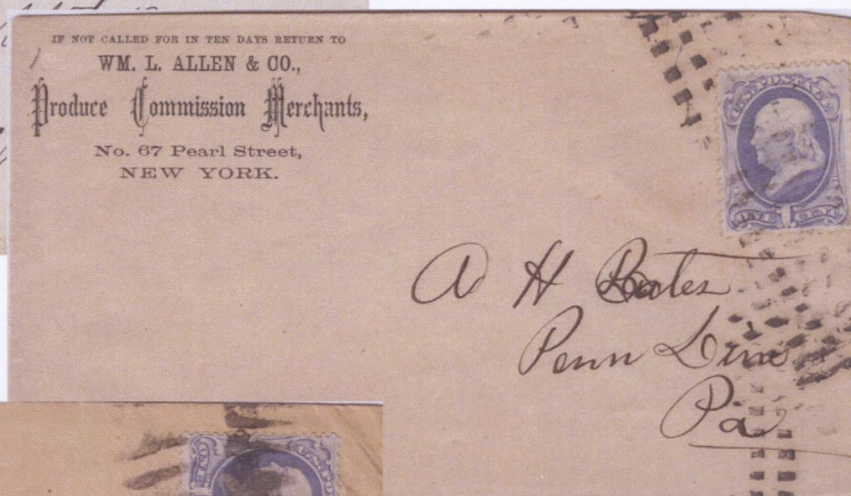 IF NOT CALLED FOR IN TEN DAYS RETURN TO
WM. L. ALLEN & CO.,
Produce Commission Merchants,
No. 67 Pearl Street,
NEW YORK.
U.S. POSTAGE
A H Bates
Penn Line
Pa